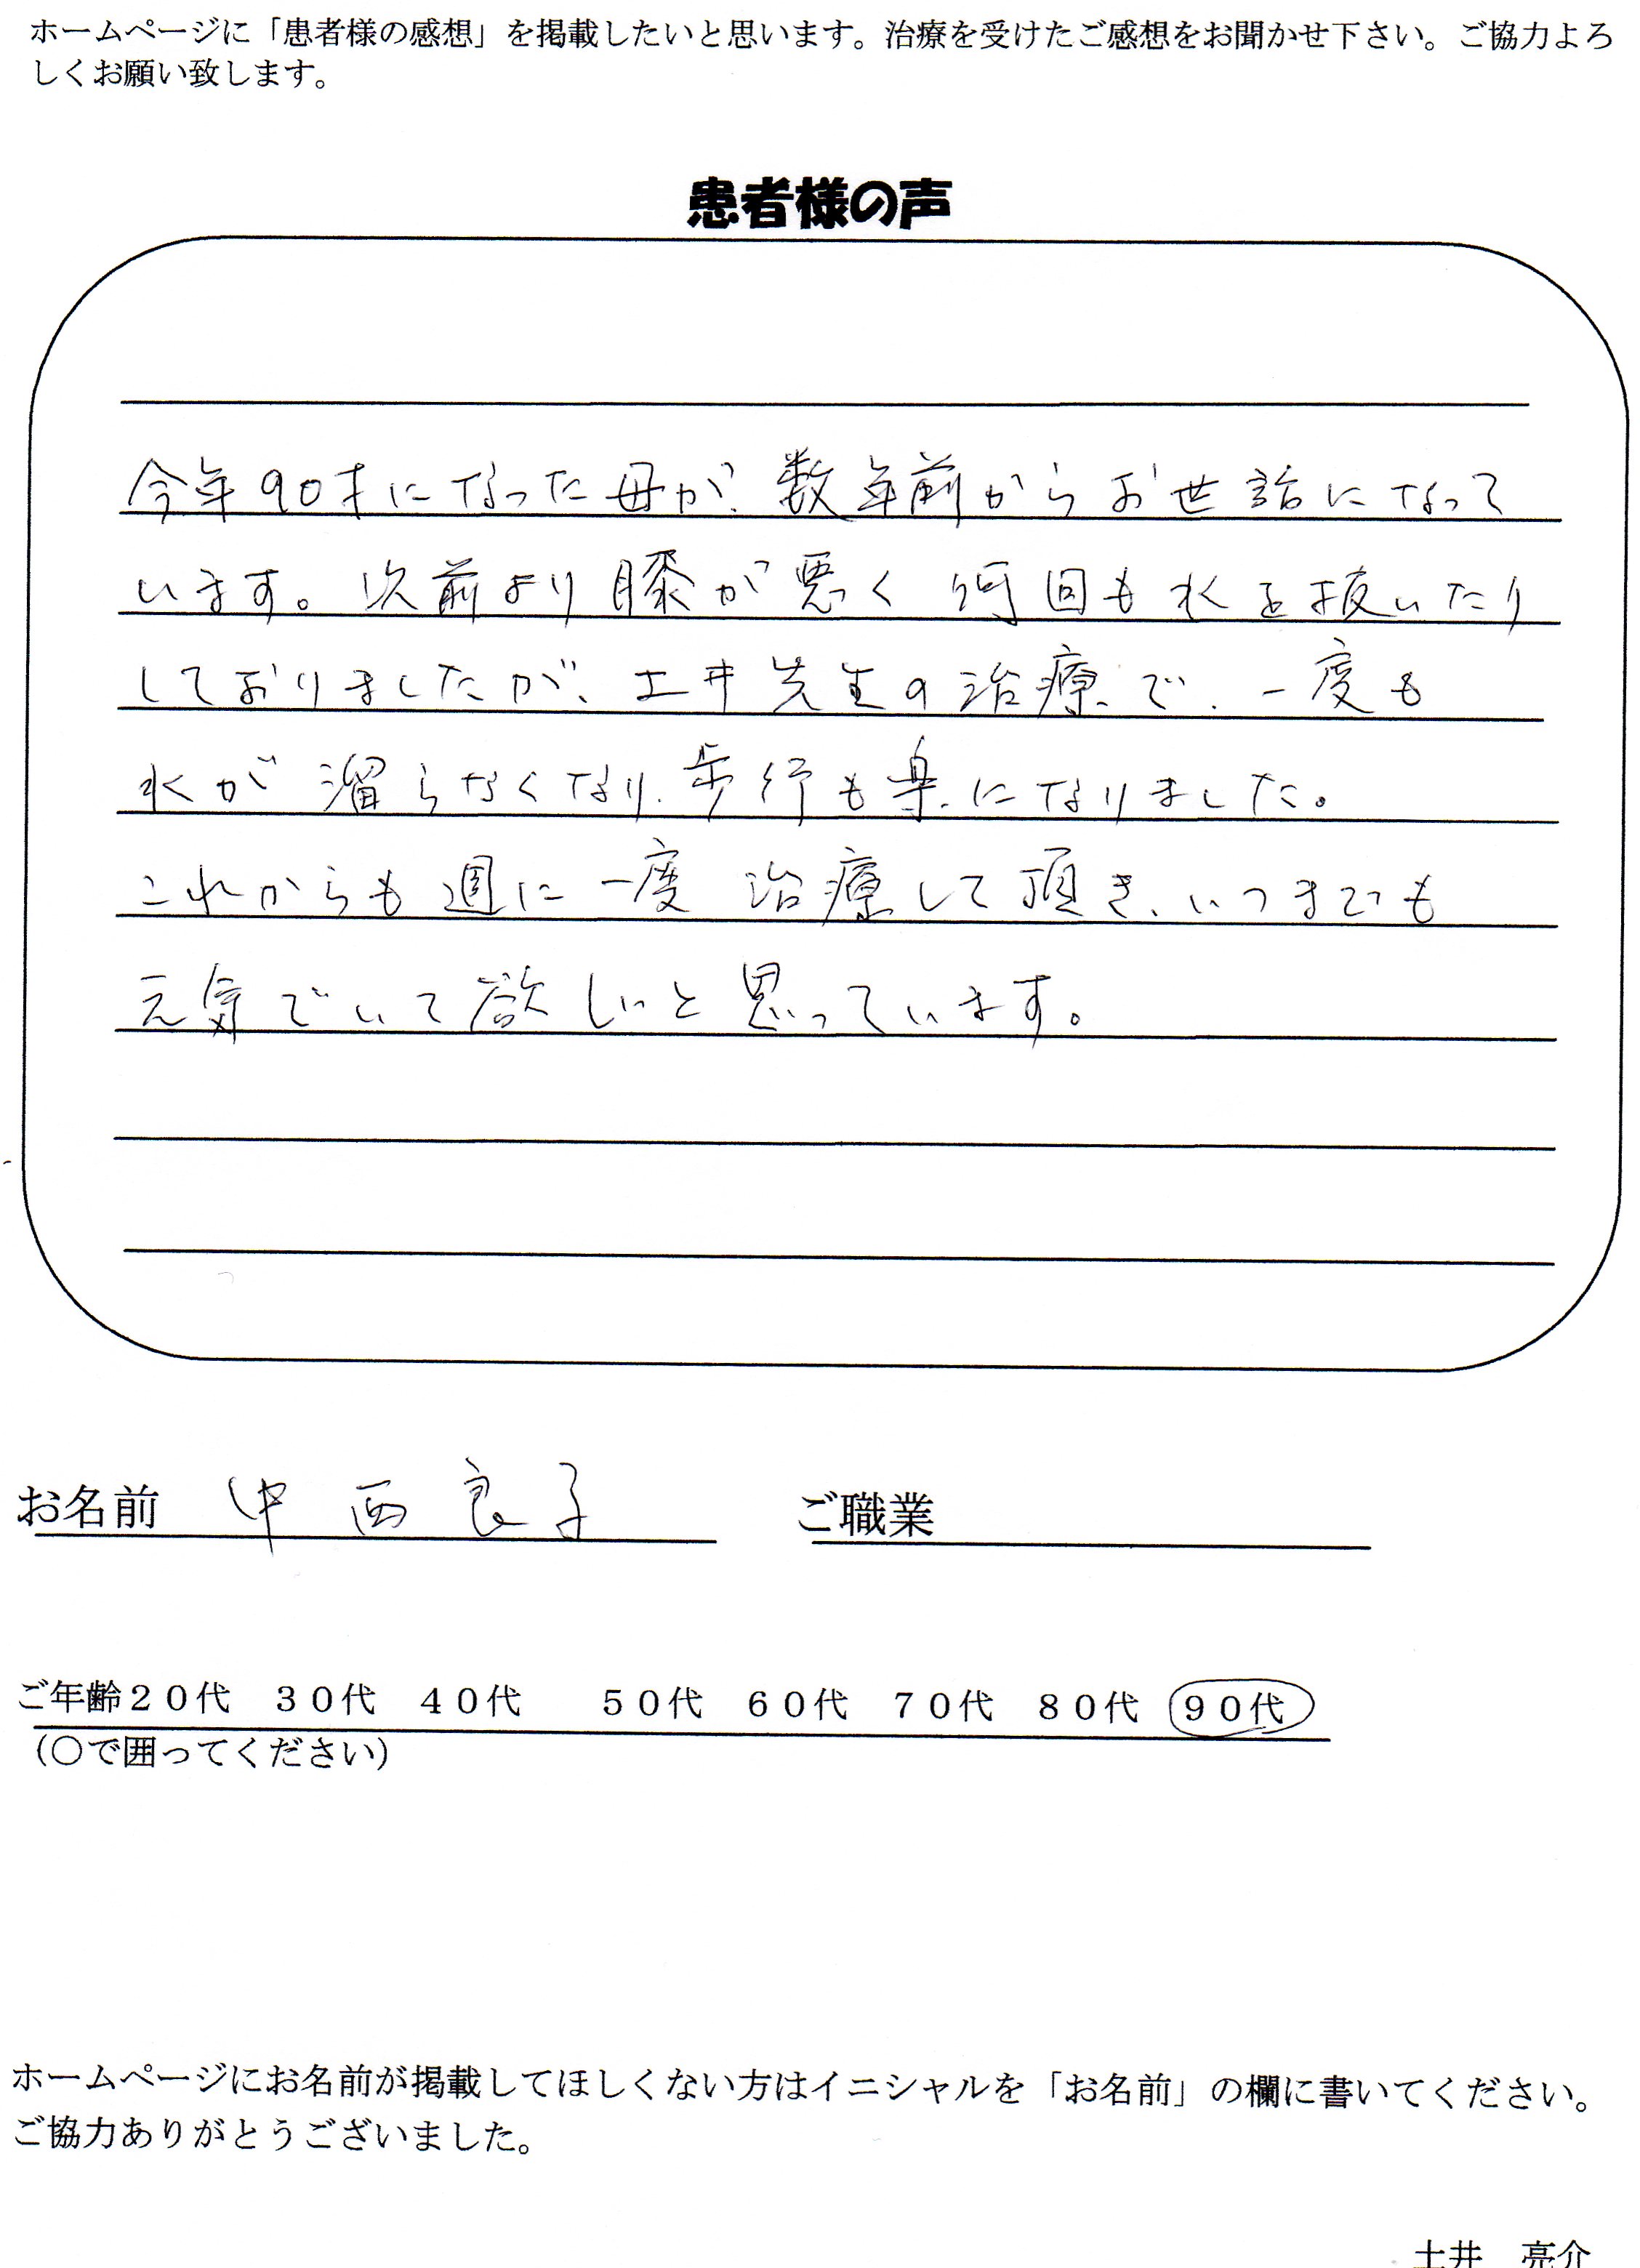 ホームページに「患者様の感想」を掲載したいと思います。治療を受けたご感想をお聞かせ下さい。ご協力よろ
しくお願い致します。
患者様の声
今年90才になった母が、数年前からお世話になって
います。以前より膝が悪く 何回も水を抜いたり
しておりましたが、土井先生の治療で、一度も
水が溜らなくなり、歩行も楽になりました。
これからも週に一度 治療して頂き、いつまでも
元気でいて欲しいと思っています。
お名前 中西良子 ご職業
ご年齢２０代 ３０代 ４０代 ５０代 ６０代 ７０代 ８０代 ９０代
（〇で囲ってください）
ホームページにお名前が掲載してほしくない方はイニシャルを「お名前」の欄に書いてください。
ご協力ありがとうございました。
土井 亮介